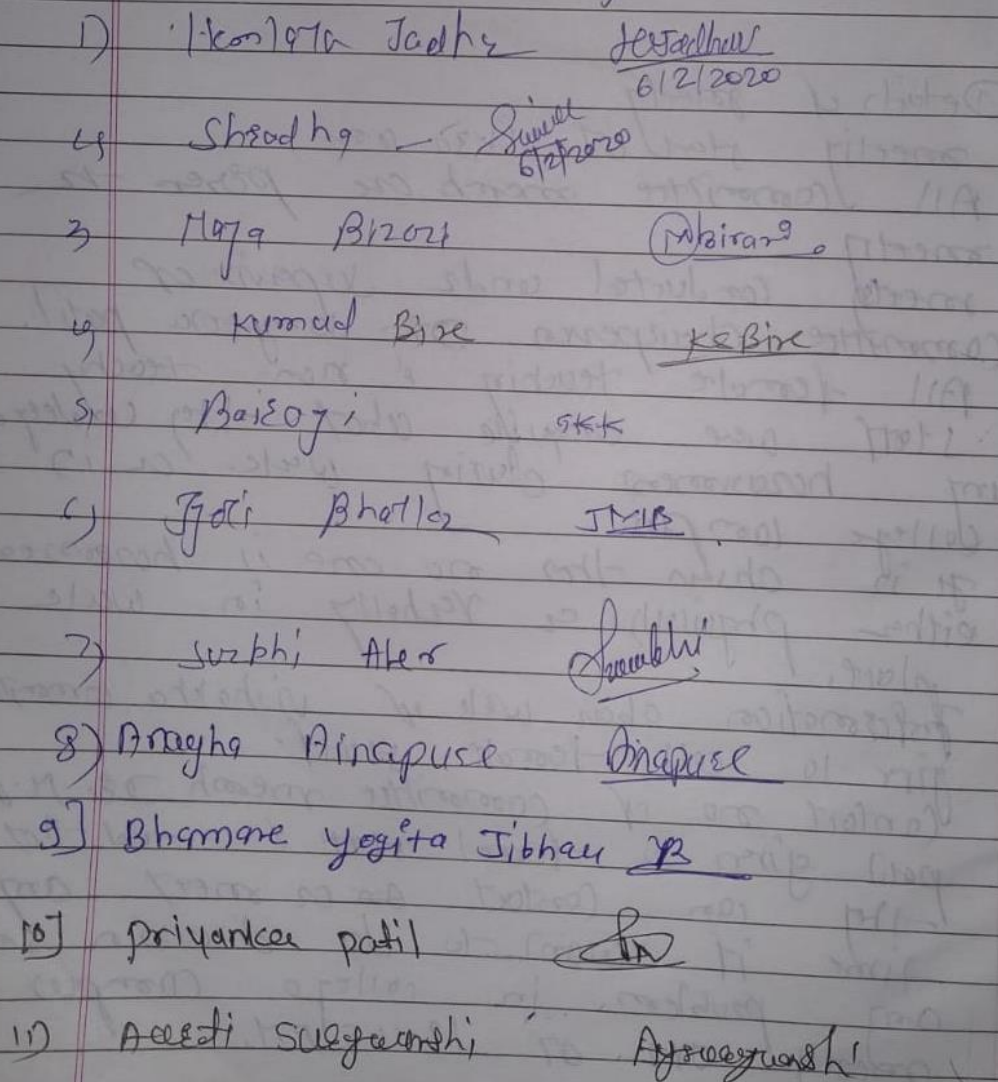 1) Jadhav
6/2/2020
Shradha -
6/2/2020
3 Maya Birari Mbirari
4) Kumud Bire KRBire
5) Bairagi SKK
6) Jyoti Bhalla JMB
7) Surbhi Aher Surabhi
8) Anagha Ainapure Ainapure
9] Bhamare Yogita Jibhau YB
10] Priyanka patil
11) Aarti Suryawanshi Aysuryawanshi